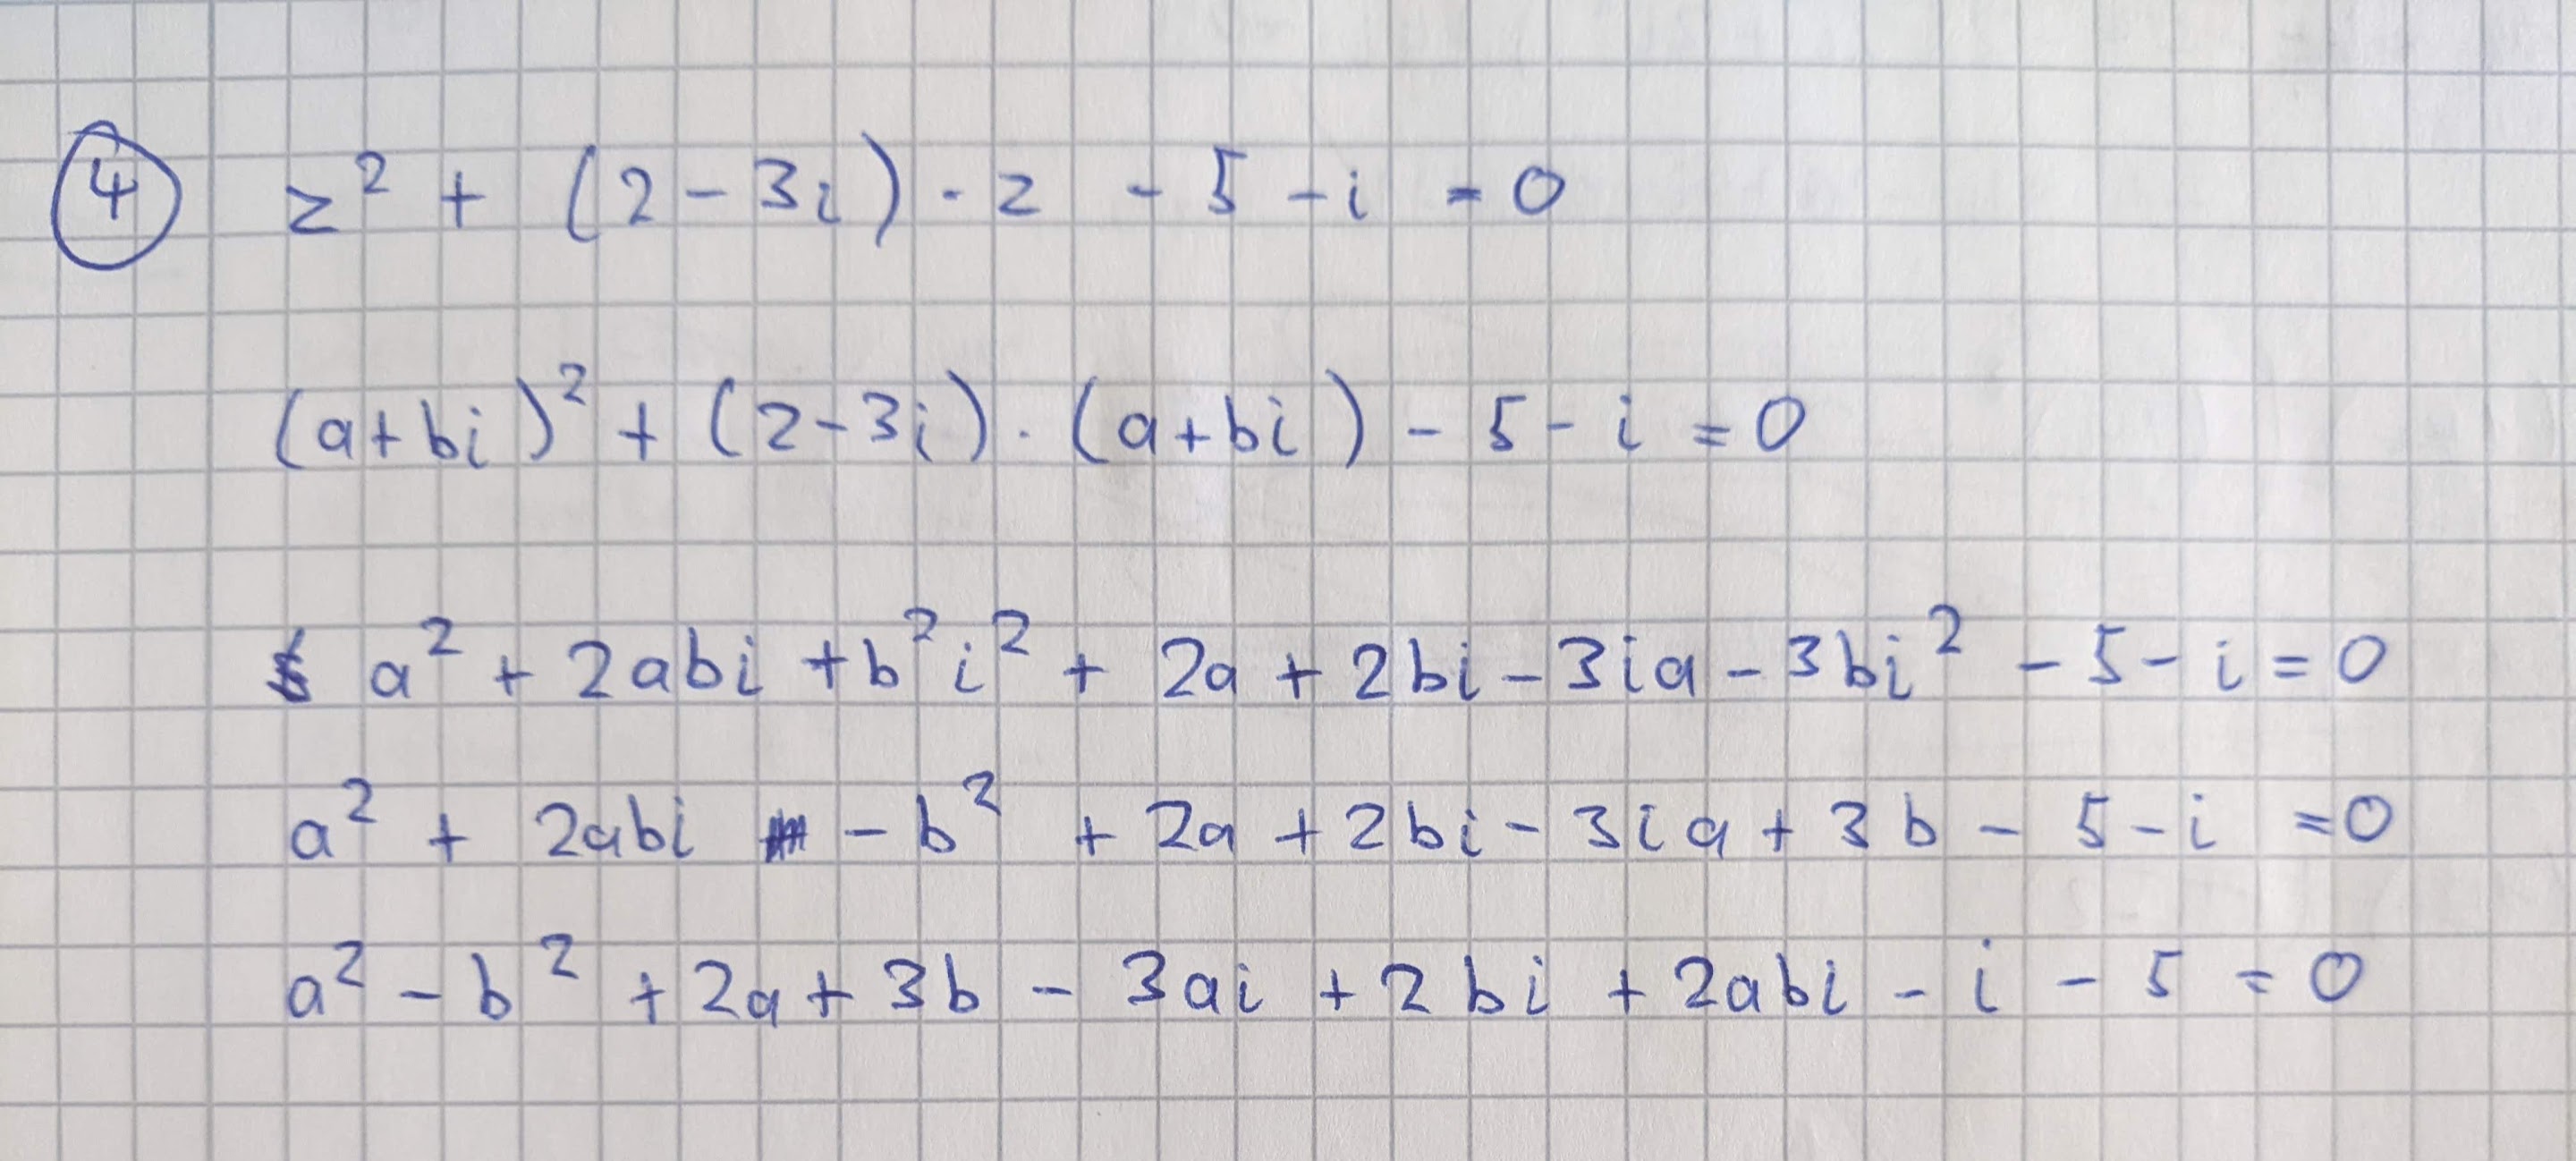 ④ z² + (2-3i) · z - 5 - i = 0
(a+bi)² + (2-3i) · (a+bi) - 5 - i = 0
a² + 2abi + b²i² + 2a + 2bi - 3ia - 3bi² - 5 - i = 0
a² + 2abi - b² + 2a + 2bi - 3ia + 3b - 5 - i = 0
a² - b² + 2a + 3b - 3ai + 2bi + 2abi - i - 5 = 0